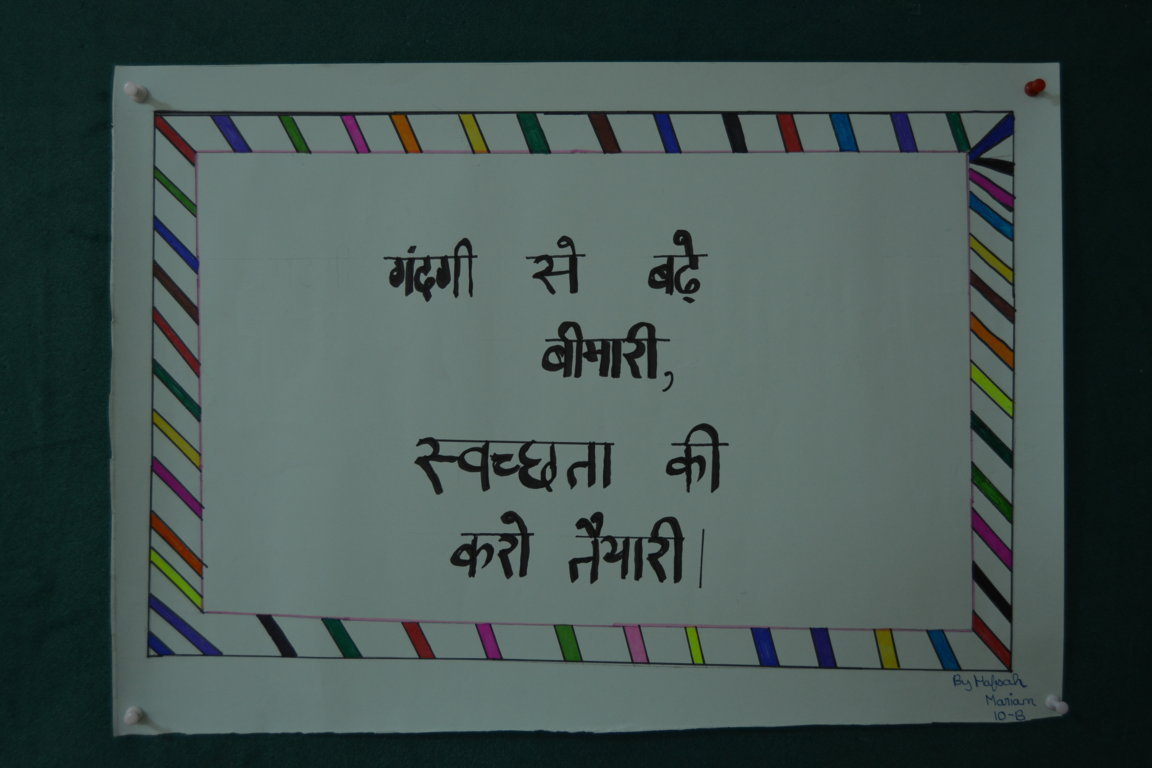 गंदगी से बढ़े
बीमारी,
स्वच्छता की
करो तैयारी|
By Hafsah
Mariam
10-B